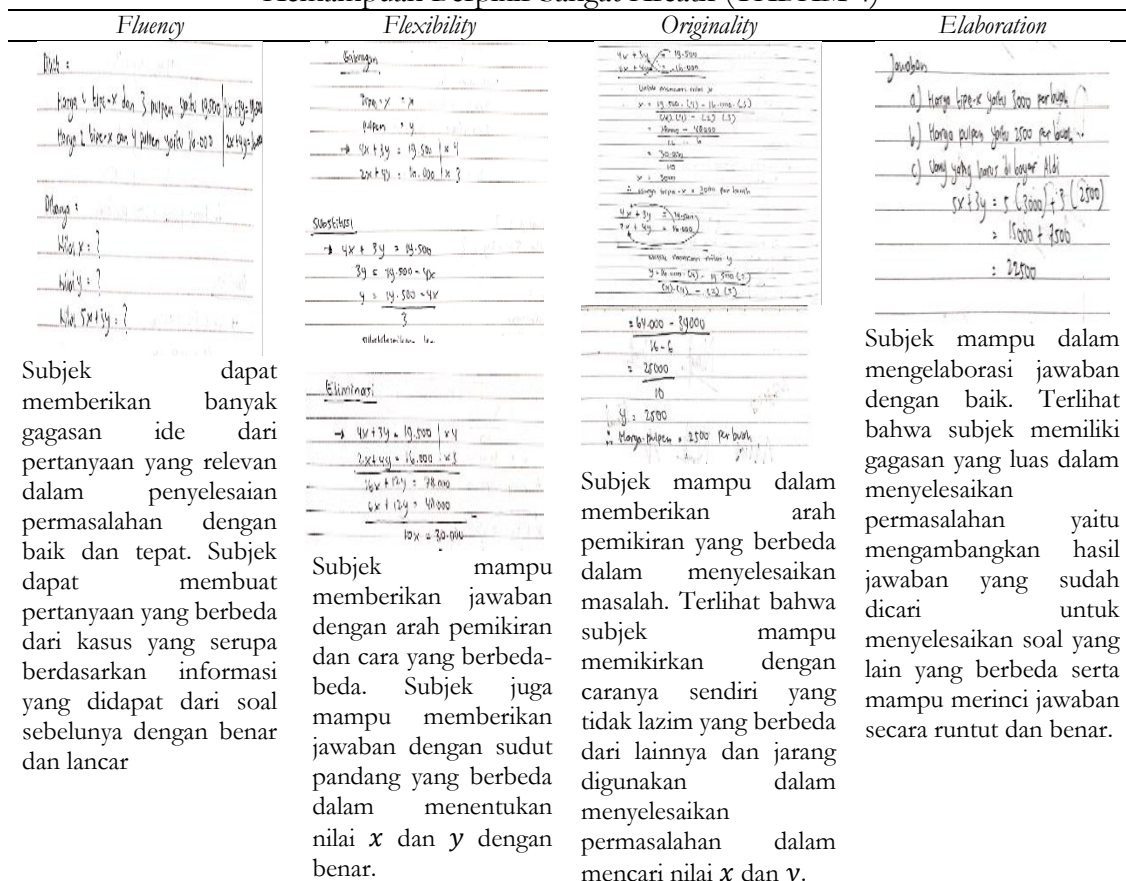 Fluency
Flexibility
Originality
Elaboration
harga 2 tipe-x dan 4 pulpen yaitu 16.000
Nilai x = ?
Nilai y = ?
Nilai 5x+3y = ?
Subjek dapat
memberikan banyak
gagasan ide dari
pertanyaan yang relevan
dalam penyelesaian
permasalahan dengan
baik dan tepat. Subjek
dapat membuat
pertanyaan yang berbeda
dari kasus yang serupa
berdasarkan informasi
yang didapat dari soal
sebelunya dengan benar
dan lancar
pulpen : y
→ 4x + 3y = 19.500 | x 4
2x + 4y = 16.000 | x 3
Substitusi
→ 4x + 3y = 19.500
3y = 19.500 - 4x
y = 19.500 - 4x
3
Eliminasi
→ 4x + 3y = 19.500 | x 4
2x + 4y = 16.000 | x 3
16x + 12y = 78.000
6x + 12y = 48.000
10x = 30.000
Subjek mampu
memberikan jawaban
dengan arah pemikiran
dan cara yang berbeda-
beda. Subjek juga
mampu memberikan
jawaban dengan sudut
pandang yang berbeda
dalam menentukan
nilai x dan y dengan
benar.
4x + 3y = 19.500
2x + 4y = 16.000
Untuk mencari nilai x
x = 19.500 . (4) - 16.000 . (3)
(4).(4) - (2) (3)
= 78000 - 48000
16 - 6
= 30.000
10
x = 3000
∴ Harga tipe-x = 3000 per buah
4x + 3y = 19.500
2x + 4y = 16.000
untuk mencari nilai y
y = 16.000 . (4) - 19.500 (2)
(4).(4) - (2) (3)
= 64.000 - 39000
16 - 6
= 25000
10
y = 2500
∴ Harga pulpen = 2500 per buah
Subjek mampu dalam
memberikan arah
pemikiran yang berbeda
dalam menyelesaikan
masalah. Terlihat bahwa
subjek mampu
memikirkan dengan
caranya sendiri yang
tidak lazim yang berbeda
dari lainnya dan jarang
digunakan dalam
menyelesaikan
permasalahan dalam
mencari nilai x dan y.
Jawaban
a) Harga tipe-x yaitu 3000 per buah
b) Harga pulpen yaitu 2500 per buah
c) Uang yang harus di bayar Aldi
5x + 3y = 5 (3000) + 3 (2500)
= 15000 + 7500
= 22500
Subjek mampu dalam
mengelaborasi jawaban
dengan baik. Terlihat
bahwa subjek memiliki
gagasan yang luas dalam
menyelesaikan
permasalahan yaitu
mengambangkan hasil
jawaban yang sudah
dicari untuk
menyelesaikan soal yang
lain yang berbeda serta
mampu merinci jawaban
secara runtut dan benar.